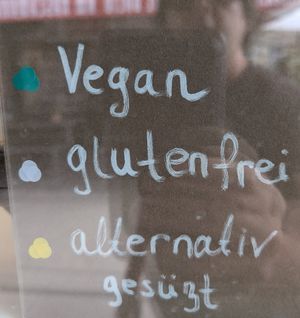 Vegan
glutenfrei
alternativ
gesüzt